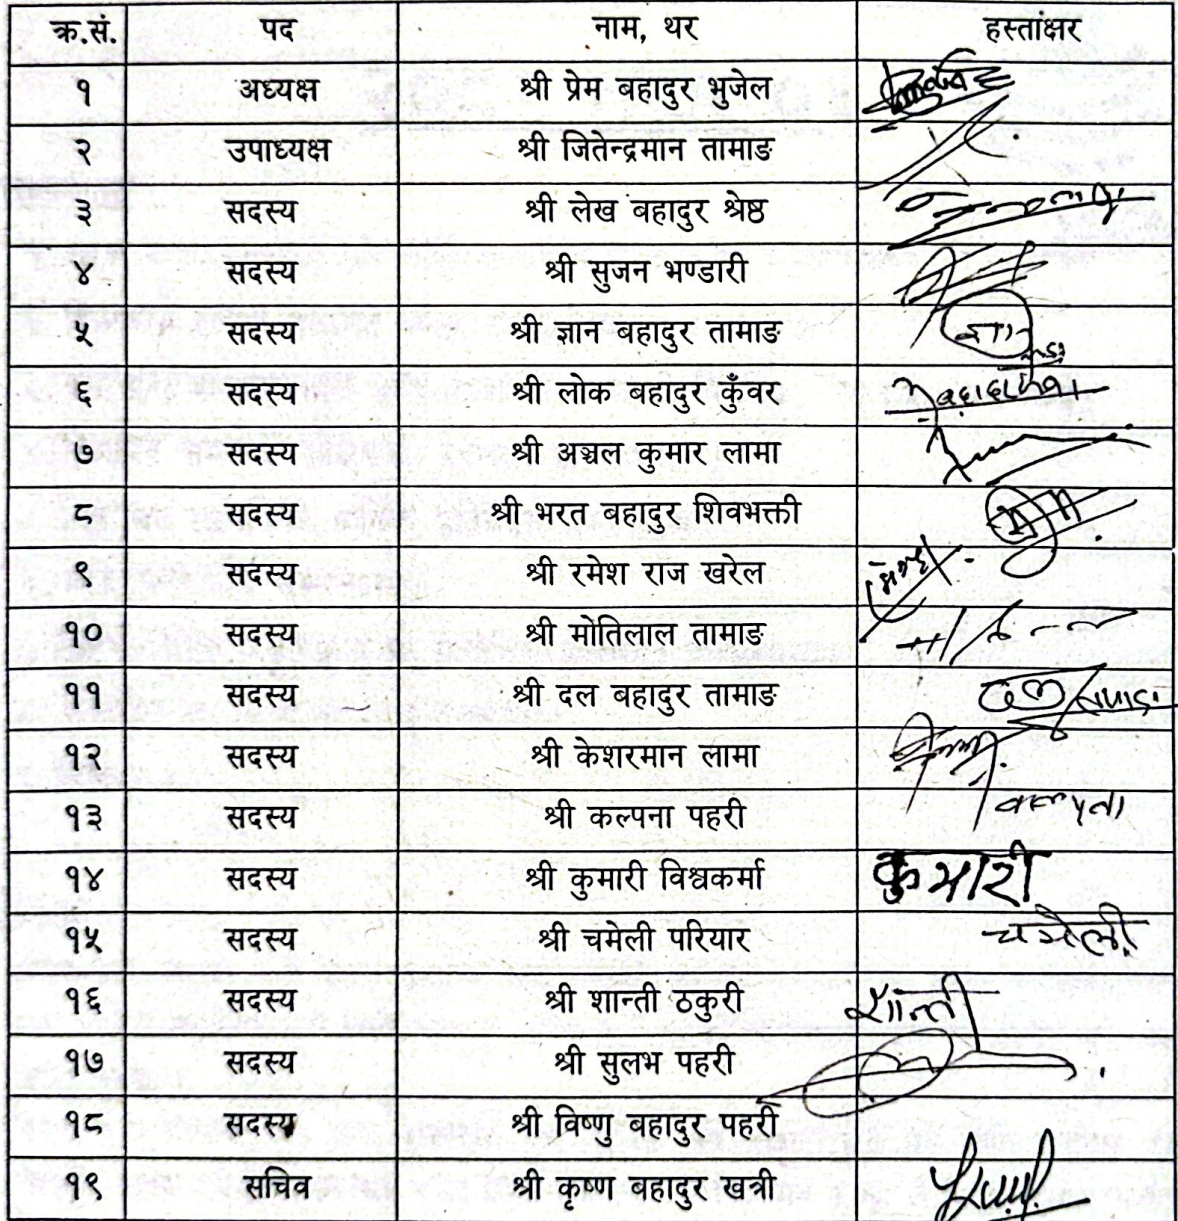 क्र.सं. पद नाम, थर हस्तांक्षर
१ अध्यक्ष श्री प्रेम बहादुर भुजेल
२ उपाध्यक्ष श्री जितेन्द्रमान तामाङ
३ सदस्य श्री लेख बहादुर श्रेष्ठ
४ सदस्य श्री सुजन भण्डारी
५ सदस्य श्री ज्ञान बहादुर तामाङ
६ सदस्य श्री लोक बहादुर कुँवर
७ सदस्य श्री अञ्चल कुमार लामा
८ सदस्य श्री भरत बहादुर शिवभक्ती
९ सदस्य श्री रमेश राज खरेल
१० सदस्य श्री मोतिलाल तामाङ
११ सदस्य श्री दल बहादुर तामाङ
१२ सदस्य श्री केशरमान लामा
१३ सदस्य श्री कल्पना पहरी कल्पना
१४ सदस्य श्री कुमारी विश्वकर्मा कुमारी
१५ सदस्य श्री चमेली परियार चमेली
१६ सदस्य श्री शान्ती ठकुरी शान्ती
१७ सदस्य श्री सुलभ पहरी
१८ सदस्य श्री विष्णु बहादुर पहरी
१९ सचिव श्री कृष्ण बहादुर खत्री